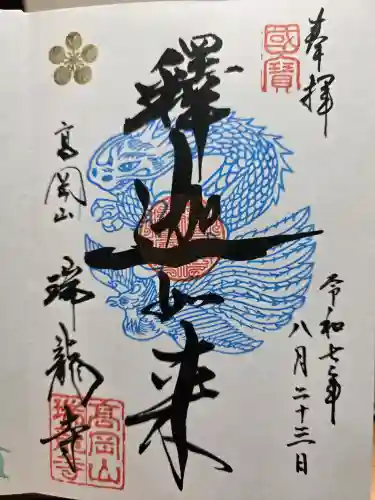 奉拝
國寶
令和七年
八月二十三日
釋迦如来
高岡山
瑞龍寺
髙岡山
瑞龍寺